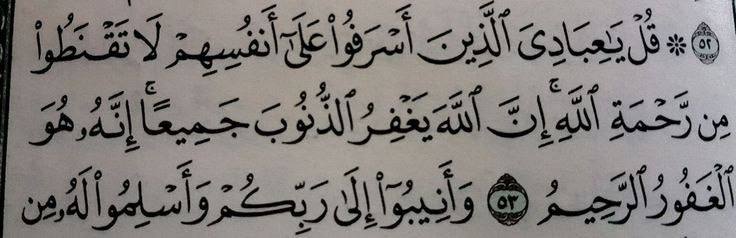 ٥٢ ۞ قُلْ يَٰعِبَادِىَ ٱلَّذِينَ أَسْرَفُوا۟ عَلَىٰٓ أَنفُسِهِمْ لَا تَقْنَطُوا۟
مِن رَّحْمَةِ ٱللَّهِ ۚ إِنَّ ٱللَّهَ يَغْفِرُ ٱلذُّنُوبَ جَمِيعًا ۚ إِنَّهُۥ هُوَ
ٱلْغَفُورُ ٱلرَّحِيمُ ٥٣ وَأَنِيبُوٓا۟ إِلَىٰ رَبِّكُمْ وَأَسْلِمُوا۟ لَهُۥ مِن